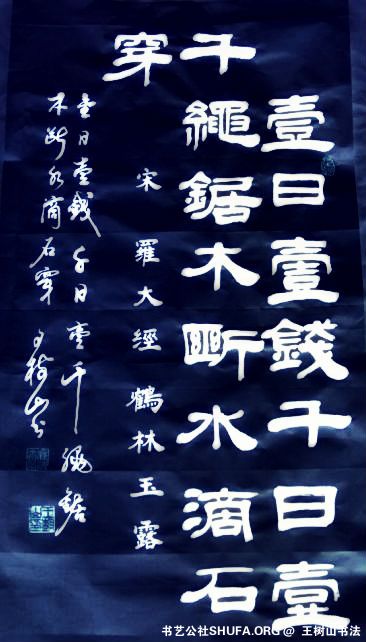 壹日壹錢千日壹
千繩鋸木斷水滴石
穿
宋羅大經鶴林玉露
壹日壹錢千日壹千繩鋸
木斷水滴石穿 王樹山書
书艺公社SHUFA.ORG @ 王树山书法